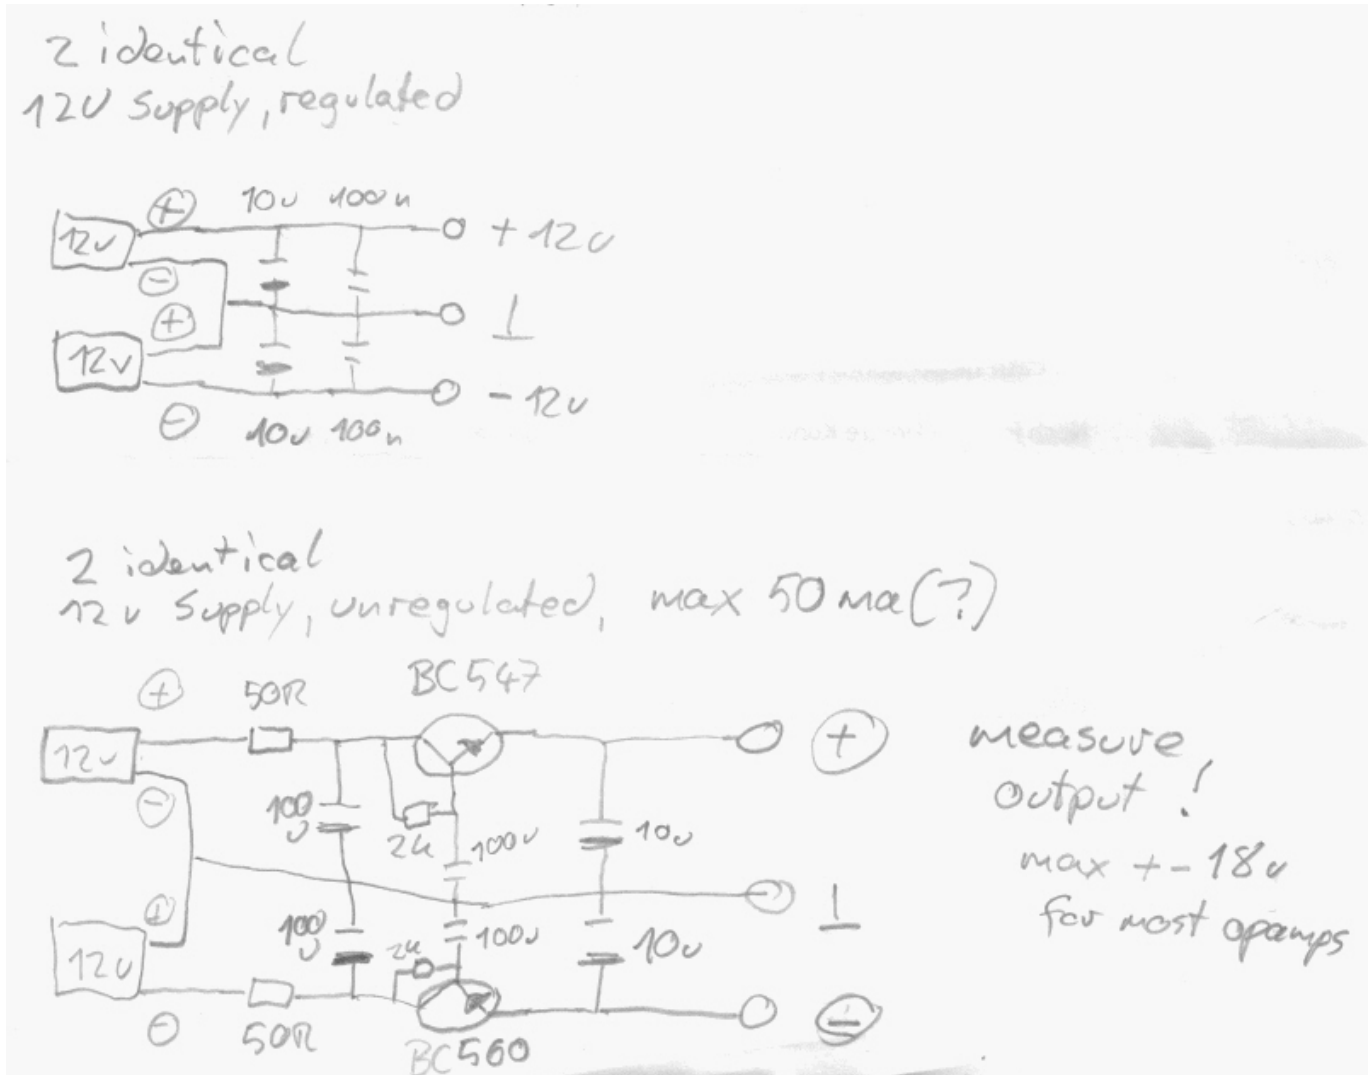 2 identical
12V Supply, regulated
+ 10u 100n
12V + 12V
-
+ ⊥
12V
- 12V
- 10u 100n
2 identical
12V Supply, unregulated, max 50ma(?)
+ 50R BC547
12V + measure
- output!
100u 2k 100u 10u max +- 18V
+ ⊥ for most opamps
100u 2k 100u 10u
12V
- 50R BC560 -